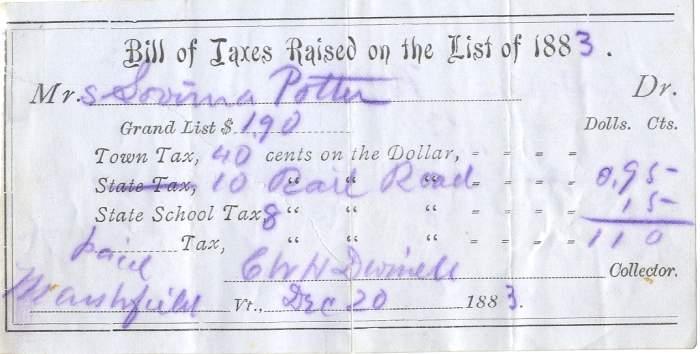 Bill of Taxes Raised on the List of 1883.
Mrs Potter Dr.
Grand List $ 1,90 Dolls. Cts.
Town Tax, 40 cents on the Dollar, = = = =
State Tax, 10 Rail Road " = = = = 0,95
State School Tax 8 " " " = = = = 15
paid Tax, " " " = = = = 1 1 0
C W H Dwinell Collector.
Marshfield Vt., Dec 20 1883.